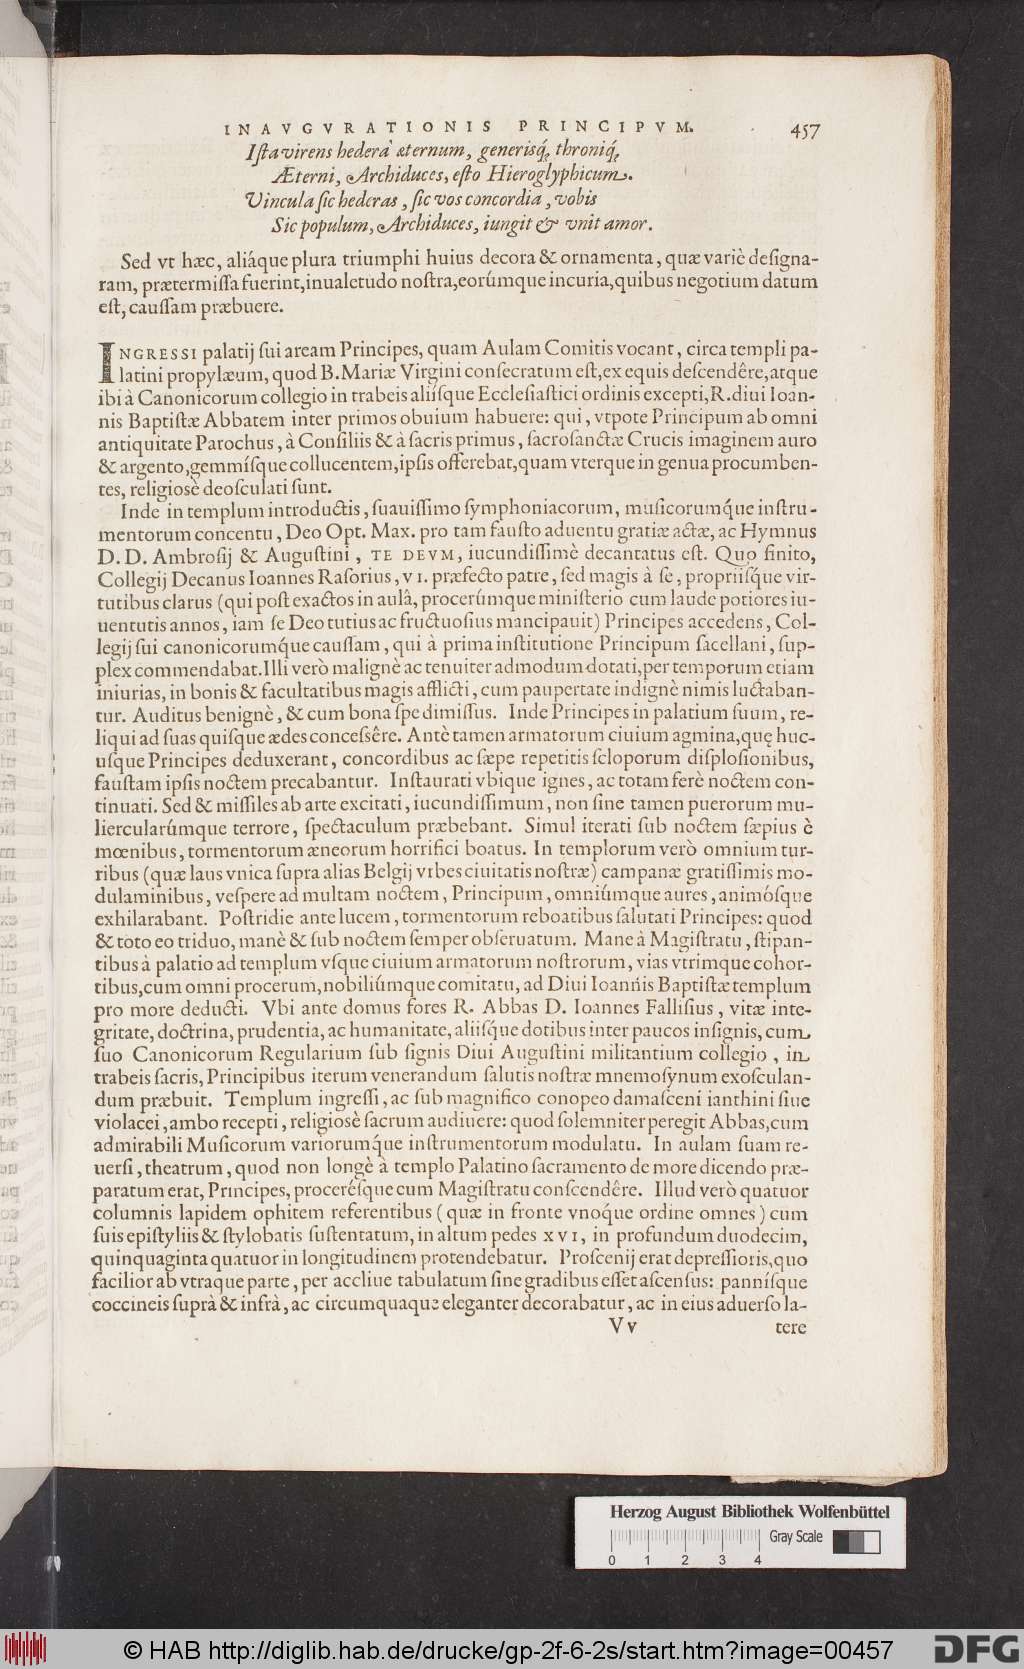 INAVGVRATIONIS PRINCIPVM. 457
Iſta virens hederà æternum, generisq́ꝫ throniq́ꝫ
Æterni, Archiduces, eſto Hieroglyphicum.
Vincula ſic hederas, ſic vos concordia, vobis
Sic populum, Archiduces, iungit & vnit amor.
Sed vt hæc, aliáque plura triumphi huius decora & ornamenta, quæ variè deſigna-
ram, prætermiſſa fuerint, inualetudo noſtra, eorúmque incuria, quibus negotium datum
eſt, cauſſam præbuere.
INGRESSI palatij ſui aream Principes, quam Aulam Comitis vocant, circa templi pa-
latini propylæum, quod B. Mariæ Virgini conſecratum eſt, ex equis deſcendêre, atque
ibi à Canonicorum collegio in trabeis aliíſque Eccleſiaſtici ordinis excepti, R. diui Ioan-
nis Baptiſtæ Abbatem inter primos obuium habuere: qui, vtpote Principum ab omni
antiquitate Parochus, à Conſiliis & à ſacris primus, ſacroſanctæ Crucis imaginem auro
& argento, gemmíſque collucentem, ipſis offerebat, quam vterque in genua procumben-
tes, religiosè deoſculati ſunt.
Inde in templum introductis, ſuauiſſimo ſymphoniacorum, muſicorumq́ue inſtru-
mentorum concentu, Deo Opt. Max. pro tam fauſto aduentu gratiæ actæ, ac Hymnus
D. D. Ambroſij & Auguſtini, TE DEVM, iucundiſſimè decantatus eſt. Quo finito,
Collegij Decanus Ioannes Raſorius, VI. præfecto patre, ſed magis à ſe, propriiſq́ue vir-
tutibus clarus (qui poſt exactos in aulâ, procerúmque miniſterio cum laude potiores iu-
uentutis annos, iam ſe Deo tutius ac fructuoſius mancipauit) Principes accedens, Col-
legij ſui canonicorumq́ue cauſſam, qui à prima inſtitutione Principum ſacellani, ſup-
plex commendabat. Illi verò malignè ac tenuiter admodum dotati, per temporum etiam
iniurias, in bonis & facultatibus magis afflicti, cum paupertate indignè nimis luctaban-
tur. Auditus benignè, & cum bona ſpe dimiſſus. Inde Principes in palatium ſuum, re-
liqui ad ſuas quiſque ædes conceſsêre. Antè tamen armatorum ciuium agmina, quę huc-
uſque Principes deduxerant, concordibus ac ſæpe repetitis ſcloporum diſploſionibus,
fauſtam ipſis noctem precabantur. Inſtaurati vbique ignes, ac totam ferè noctem con-
tinuati. Sed & miſſiles ab arte excitati, iucundiſſimum, non ſine tamen puerorum mu-
liercularúmque terrore, ſpectaculum præbebant. Simul iterati ſub noctem ſæpius è
mœnibus, tormentorum æneorum horrifici boatus. In templorum verò omnium tur-
ribus (quæ laus vnica ſupra alias Belgij vrbes ciuitatis noſtræ) campanæ gratiſſimis mo-
dulaminibus, veſpere ad multam noctem, Principum, omniúmque aures, animóſque
exhilarabant. Poſtridie ante lucem, tormentorum reboatibus ſalutati Principes: quod
& toto eo triduo, manè & ſub noctem ſemper obſeruatum. Mane à Magiſtratu, ſtipan-
tibus à palatio ad templum vſque ciuium armatorum noſtrorum, vias vtrimque cohor-
tibus, cum omni procerum, nobiliúmque comitatu, ad Diui Ioannis Baptiſtæ templum
pro more deducti. Vbi ante domus fores R. Abbas D. Ioannes Falliſius, vitæ inte-
gritate, doctrina, prudentia, ac humanitate, aliiſq́ue dotibus inter paucos inſignis, cum
ſuo Canonicorum Regularium ſub ſignis Diui Auguſtini militantium collegio, in
trabeis ſacris, Principibus iterum venerandum ſalutis noſtræ mnemoſynum exoſculan-
dum præbuit. Templum ingreſſi, ac ſub magnifico conopeo damaſceni ianthini ſiue
violacei, ambo recepti, religiosè ſacrum audiuere: quod ſolemniter peregit Abbas, cum
admirabili Muſicorum variorumq́ue inſtrumentorum modulatu. In aulam ſuam re-
uerſi, theatrum, quod non longè à templo Palatino ſacramento de more dicendo præ-
paratum erat, Principes, proceréſque cum Magiſtratu conſcendêre. Illud verò quatuor
columnis lapidem ophitem referentibus (quæ in fronte vnoq́ue ordine omnes) cum
ſuis epiſtyliis & ſtylobatis ſuſtentatum, in altum pedes XVI, in profundum duodecim,
quinquaginta quatuor in longitudinem protendebatur. Proſcenij erat depreſſioris, quo
facilior ab vtraque parte, per accliue tabulatum ſine gradibus eſſet aſcenſus: panníſque
coccineis ſuprà & infrà, ac circumquaque eleganter decorabatur, ac in eius aduerſo la-
Vv tere
Herzog August Bibliothek Wolfenbüttel
Gray Scale
0 1 2 3 4
© HAB http://diglib.hab.de/drucke/gp-2f-6-2s/start.htm?image=00457 DFG